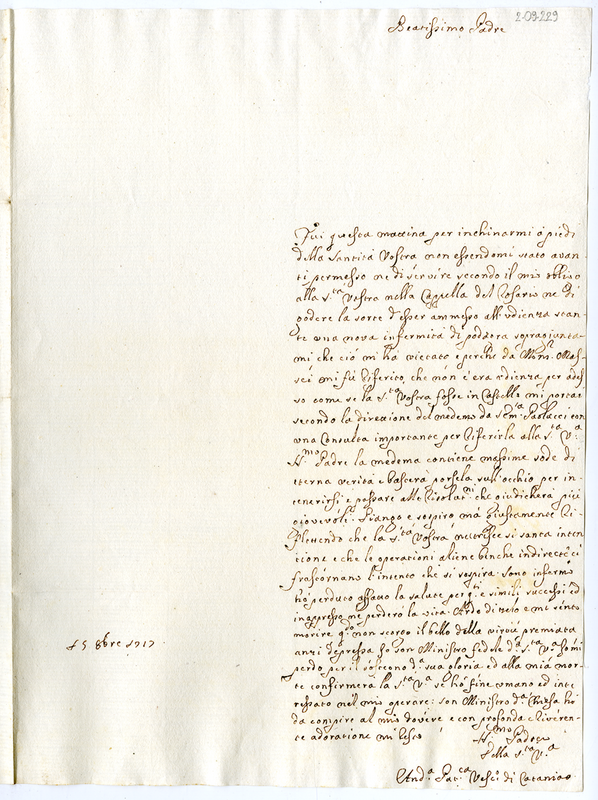 2-09-229
Beatissimo Padre
Fui questa mattina per inchinarmi a piedi
della Santità Vostra non essendomi stato avan
ti permesso ne di servire secondo il mio obligo
alla S.ta Vostra nella Cappella del Rosario ne di
godere la sorte d'esser ammesso all'udienza stan
te una nova infermità di podagra sopragiunta
mi che ciò mi hà vietato e perche da Mons.r
mi fù riferito, che non v'era udienza per ades
so come se la S.ta Vostra fosse in Castello mi portai
secondo la direzione del medemo da S.em.a Paolucci con
una Consulta importante per riferirla alla S.ta V.a
B.mo Padre la medema contiene massime sode di
eterna verità e basterà porsela sull'occhio per in
tenerirsi e passare alle che giudicherà più
giovevoli. Piango e sospiro mà giustamente ri
flettendo che la S.ta Vostra nutrisce si santa inten
tione e che le operationi aliene benche indirette ci
frastornano l'intento che si sospira. Sono infermo
hò perduto affatto la salute per q.ti e simili successi ed
in progresso ne perderò la vita. Ardo di zelo e mi sento
morire q.do non scorgo il bello della virtù premiata
anzi depressa. Io son Ministro fedele d.a S.ta V.a
perdo per il sostegno d.a sua gloria ed alla mia mor
te confirmerà la S.ta V.a se hò fine umano ed inte
ressato nel mio operare: son Ministro d.a Chiesa hò
da compire al mio dovere e con profonda e riveren
te adoratione mi resto
B.mo Padre
Della S.tà V.a
15 8bre 1717
And.a Vesc.o di Catania